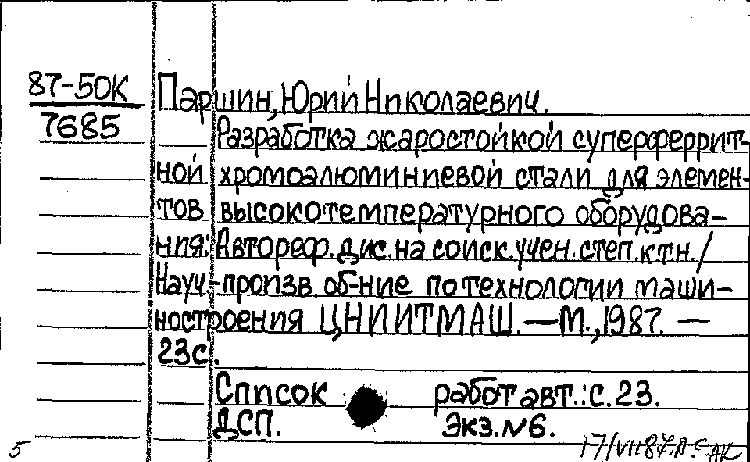 87-50К
7685
Паршин, Юрий Николаевич.
Разработка жаростойкой суперферрит-
ной хромоалюминиевой стали для элемен-
тов высокотемпературного оборудова-
ния: Автореф. дис. на соиск. учен. степ. к.т.н. /
Науч.-произв. об-ние по технологии маши-
ностроения ЦНИИТМАШ. — М., 1987. —
23 с.
Список работ авт.: с. 23.
ДСП. Экз. №6.
5